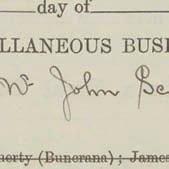 day of
LLANEOUS BUSI
Mr John Sc
herty (Buncrana) ; James